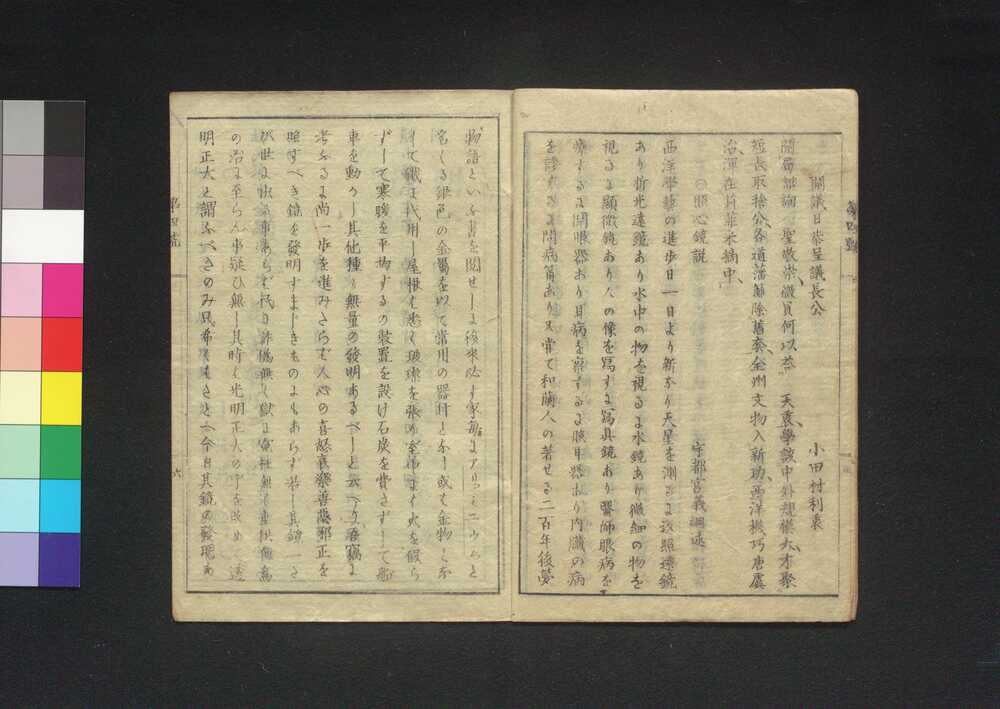 開議日恭呈議長公
小田村利褱
開局諮詢 聖敬崇、微員何以答 天衷、學該中外規模大、才聚
短長取捨公、各道藩論除舊套、全州文物入新功、西洋機巧唐虞
治、渾在萬華采摘中、
○照心鏡説
宇都宮義綱述
西洋學藝の進歩日一日より新なり天星を測るに返照遠鏡
あり折光遠鏡あり水中の物を視るに水鏡あり微細の物を
視るに顕微鏡あり人の像を寫すに寫真鏡あり醫師眼病を
療するに開眼器あり耳病を察するに照耳器あり内臓の病
を診するに聞病筩あり又嘗て和蘭人の著せる二百年後夢
物語といふ書を閲せしに後來必す家毎にアリユミニウムと
名くる銀色の金屬を以て常用の器什となし或て金物となし
て鐵に代用し屋根も悉く玻璨を張り室中にて火を假ら
ずして寒暖を平均するの装置を設け石炭を費さずして船
車を動かし其他種々無量の發明あるべしと云へり吾竊に
考ふるに尚一歩を進みさらに人心の喜怒哀樂善惡邪正を
照すべき鏡を發明すまじきものにもあらず若し其鏡一たび
世に出る事あらば民に詐僞無く獄に寃枉無く
の治に至らん事疑ひ無し其時こそ光明正大の
明正大と謂ふべきのみ只希くは今日其鏡の發現
第四號
六